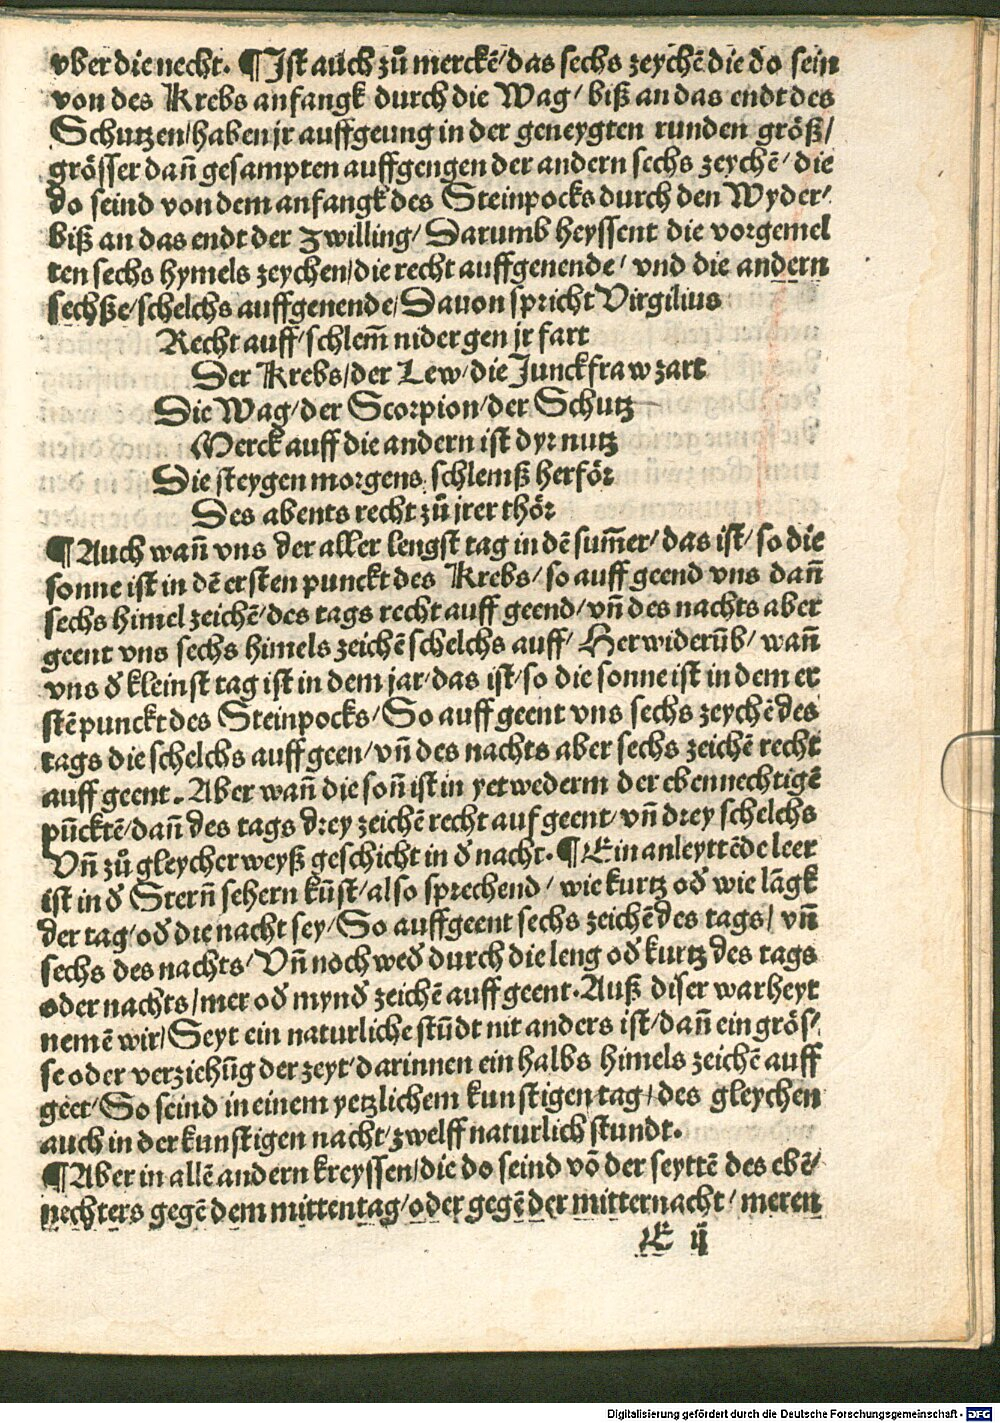 vber die necht. ¶ Ist auch zů merckē/ das sechs zeychē die do sein
von des Krebs anfangk durch die Wag/ biß an das endt des
Schutzen/ haben jr auffgeung in der geneygten runden größ/
grösser dañ gesampten auffgengen der andern sechs zeychē/ die
do seind von dem anfangk des Steinpocks durch den Wyder/
biß an das endt der Zwilling/ Darumb heyssent die vorgemel
ten sechs hymels zeychen/ die recht auffgenende/ vnd die andern
sechße/ schelchs auffgenende/ Dauon spricht Virgilius
Recht auff/ schlem̄ nider gen jr fart
Der Krebs/ der Lew/ die Junckfraw zart
Die Wag/ der Scorpion/ der Schutz
Merck auff die andern ist dyr nutz
Die steygen morgens schlemß herför
Des abents recht zů jrer thör
¶ Auch wañ vns der aller lengst tag in dē sum̄er/ das ist/ so die
sonne ist in dē ersten punckt des Krebs/ so auff geend vns dañ
sechs himel zeichē/ des tags recht auff geend/ vñ des nachts aber
geent vns sechs himels zeichē schelchs auff/ Herwiderūb/ wañ
vns d̕ kleinst tag ist in dem jar/ das ist/ so die sonne ist in dem er
stē punckt des Steinpocks/ So auff geent vns sechs zeychē des
tags die schelchs auff geen/ vñ des nachts aber sechs zeichē recht
auff geent. Aber wañ die soñ ist in yetwederm der ebennechtigē
pūcktē/ dañ des tags drey zeichē recht auf geent/ vñ drey schelchs
Vñ zů gleycher weyß geschicht in d̕ nacht. ¶ Ein anleyttēde leer
ist in d̕ Sterñ sehern kūst/ also sprechend/ wie kurtz od̕ wie lāgk
der tag/ od̕ die nacht sey/ So auffgeent sechs zeichē des tags/ vñ
sechs des nachts/ Vñ noch wed̕ durch die leng od̕ kurtz des tags
oder nachts/ mer od̕ mynd̕ zeichē auff geent. Auß diser warheyt
nemē wir/ Seyt ein naturliche stūdt nit anders ist/ dañ ein grös/
se oder verziehūg der zeyt/ darinnen ein halbs himels zeichē auff
geet/ So seind in einem yetzlichem kunstigen tag/ des gleychen
auch in der kunstigen nacht/ zwelff naturlich stundt.
¶ Aber in allē andern kreyssen/ die do seind vō der seyttē des ebē/
nechters gegē dem mittentag/ oder gegē der mitternacht/ meren
E ij
Digitalisierung gefördert durch die Deutsche Forschungsgemeinschaft - DFG